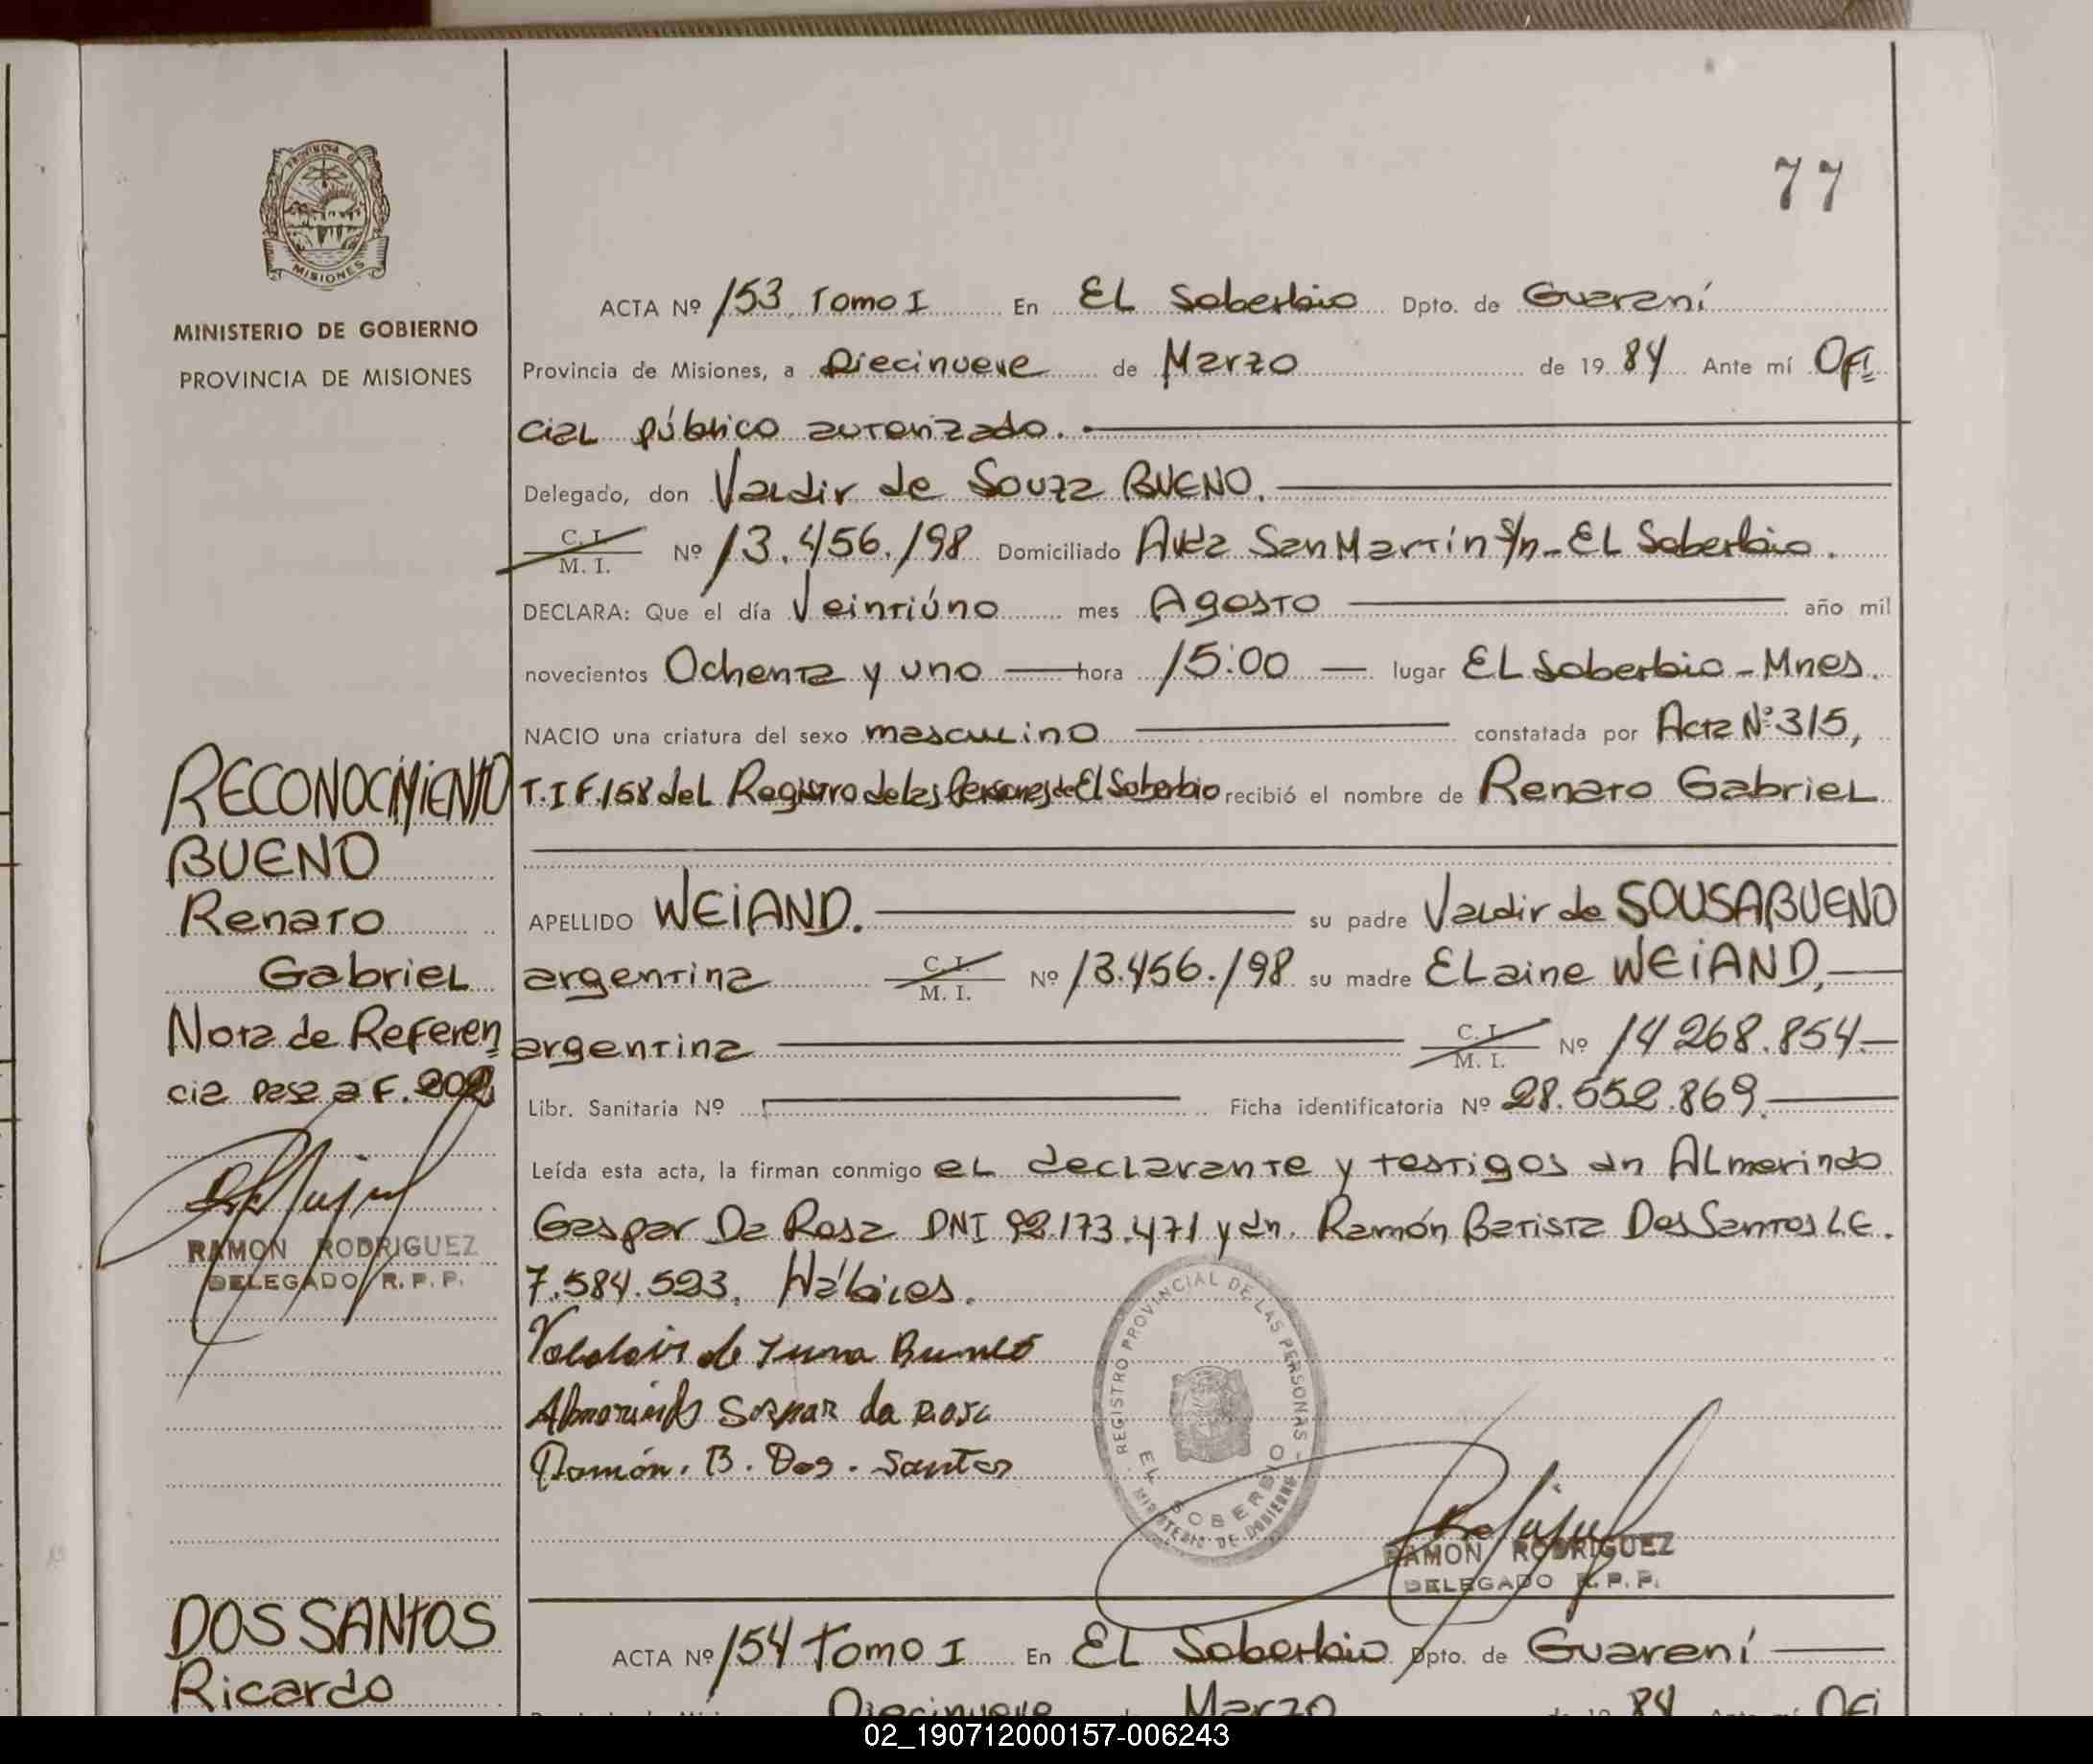 77
PROVINCIA DE
MISIONES
MINISTERIO DE GOBIERNO
PROVINCIA DE MISIONES
ACTA Nº 153 Tomo I En EL Soberbio Dpto. de Guaraní
Provincia de Misiones, a Diecinueve de Marzo de 1984 Ante mí Ofi
cial público autorizado.
Delegado, don Valdir de Souza BUENO.
C. I.
M. I. Nº 13.456.198 Domiciliado Avda San Martín S/n - EL Soberbio.
DECLARA: Que el día Veintiúno mes Agosto año mil
novecientos Ochenta y uno hora 15:00 lugar EL Soberbio - Mnes.
NACIO una criatura del sexo masculino constatada por Acta Nº 315,
T.I F.158 del Registro de las Personas de El Soberbio recibió el nombre de Renato Gabriel
APELLIDO WEiAND. su padre Valdir de SOUSA BUENO
argentina C. I.
M. I. Nº 13.456.198 su madre ELaine WEiAND,
argentina C. I.
M. I. Nº 14 268.854.
Libr. Sanitaria Nº Ficha identificatoria Nº 28.552.869.
Leída esta acta, la firman conmigo el declarante y testigos dn Almerindo
Gaspar Da Rosa DNI 92.173.471 y dn. Ramón Batista Dos Santos L.E.
7.584.593. Hábiles.
RECONOCIMIENTO
BUENO
Renato
Gabriel
Nota de Referen
cia pasa a F. 202
RAMON RODRIGUEZ
DELEGADO R. P. P.
Almerindo Gaspar da Rosa
Ramón. B. Dos. Santos
REGISTRO PROVINCIAL DE LAS PERSONAS
EL SOBERBIO
MINISTERIO DE GOBIERNO
RAMON RODRIGUEZ
DELEGADO R. P. P.
DOS SANTOS
Ricardo
ACTA Nº 154 Tomo I En EL Soberbio Dpto. de Guaraní
Diecinueve Marzo 84 Ofi
02_190712000157-006243